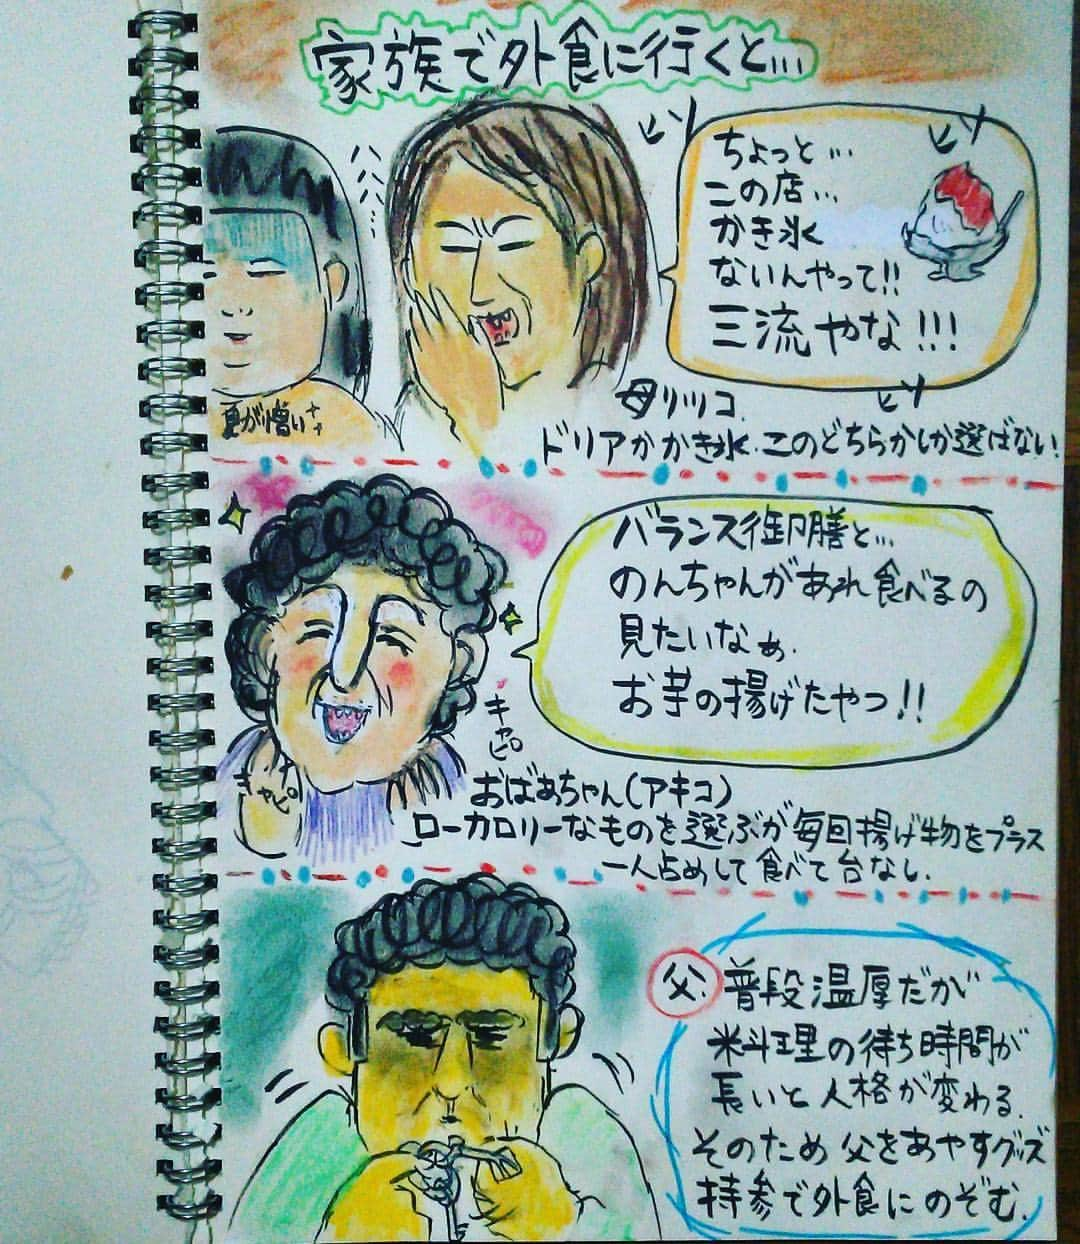 家族で外食に行くと...
ハハハ...
ちょっと...
この店...
かき氷
ないんやって!!
三流やな!!!
夏が憎い
母リツコ.
ドリアかかき氷.このどちらかしか選ばない!
バランス御膳と...
のんちゃんがあれ食べるの
見たいなぁ.
お芋の揚げたやつ!!
キャピ
キャピ
おばあちゃん(アキコ)
ローカロリーなものを選ぶが毎回揚げ物をプラス
一人占めして食べて台なし.
父.普段温厚だが
料理の待ち時間が
長いと人格が変わる.
そのため父をあやすグッズ
持参で外食にのぞむ.